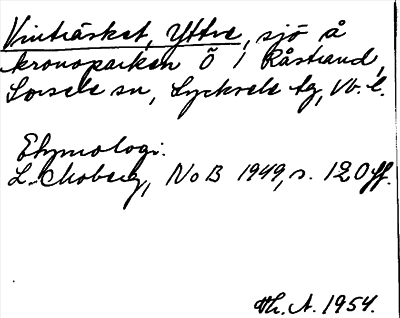 Vinträsket, Yttre, sjö å
kronoparken Ö i Råstrand,
Sorsele sn, Lycksele tg, Vb. l.
Etymologi:
L. Moberg, NoB 1949, s. 120 ff.
Th. A. 1954.